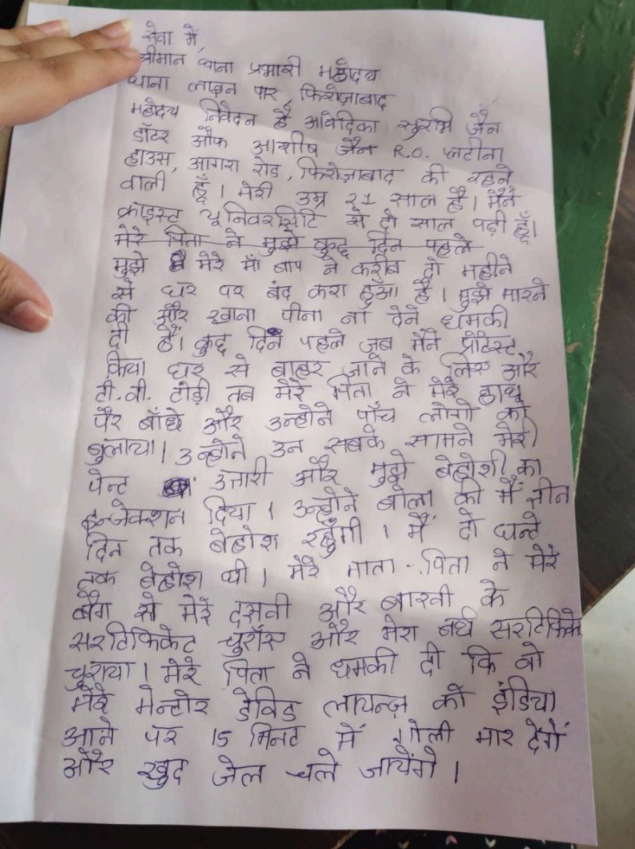 सेवा में,
श्रीमान थाना प्रभारी महोदय
थाना लाइन पार, फिरोज़ाबाद
महोदय निवेदन है आवेदिका सुरभि जैन
डॉटर ऑफ आशीष जैन R.O. प्लटीना
हाउस, आगरा रोड, फिरोज़ाबाद की रहने
वाली हूँ। मेरी उम्र 21 साल है। मैंने
क्राइस्ट यूनिवर्सिटि से दो साल पढ़ी हूँ।
मेरे पिता ने मुझे कुछ दिन पहले
मुझे मेरे माँ बाप ने करीब दो महीने
से घर पर बंद करा हुआ है। मुझे मारने
की और खाना पीना ना देने धमकी
दी है। कुछ दिन पहले जब मैंने प्रोटेस्ट
किया घर से बाहर जाने के लिए और
टी.वी. तोड़ी तब मेरे पिता ने मेरे हाथ
पैर बाँधे और उन्होंने पाँच लोगों को
बुलाया। उन्होंने उन सबके सामने मेरी
पेन्ट उतारी और मुझे बेहोशी का
इन्जेक्शन दिया। उन्होंने बोला की मैं तीन
दिन तक बेहोश रहूँगी। मैं दो घन्टे
तक बेहोश थी। मेरे माता-पिता ने मेरे
बैग से मेरे दसवी और बारवी के
सरटिफिकेट चुराए और मेरा बर्थ सरटिफिके
चुराया। मेरे पिता ने धमकी दी कि वो
मेरे मेन्टोर डेविड लायन्ज़ को इंडिया
आने पर 15 मिनट में गोली मार देगें
और खुद जेल चले जायेंगे।